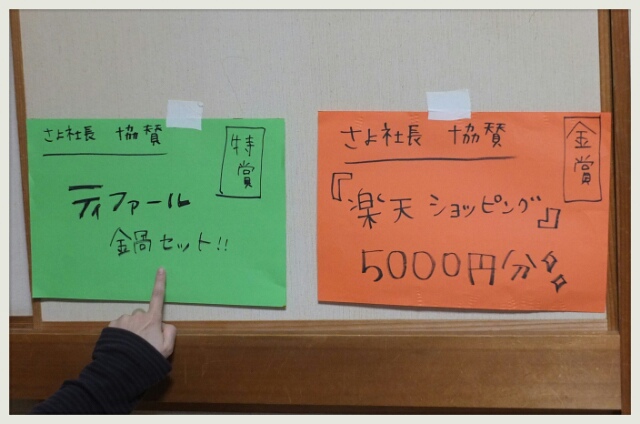 さよ社長 協賛
特賞
ティファール
鍋セット!!
さよ社長 協賛
金賞
『楽天ショッピング』
5000円分